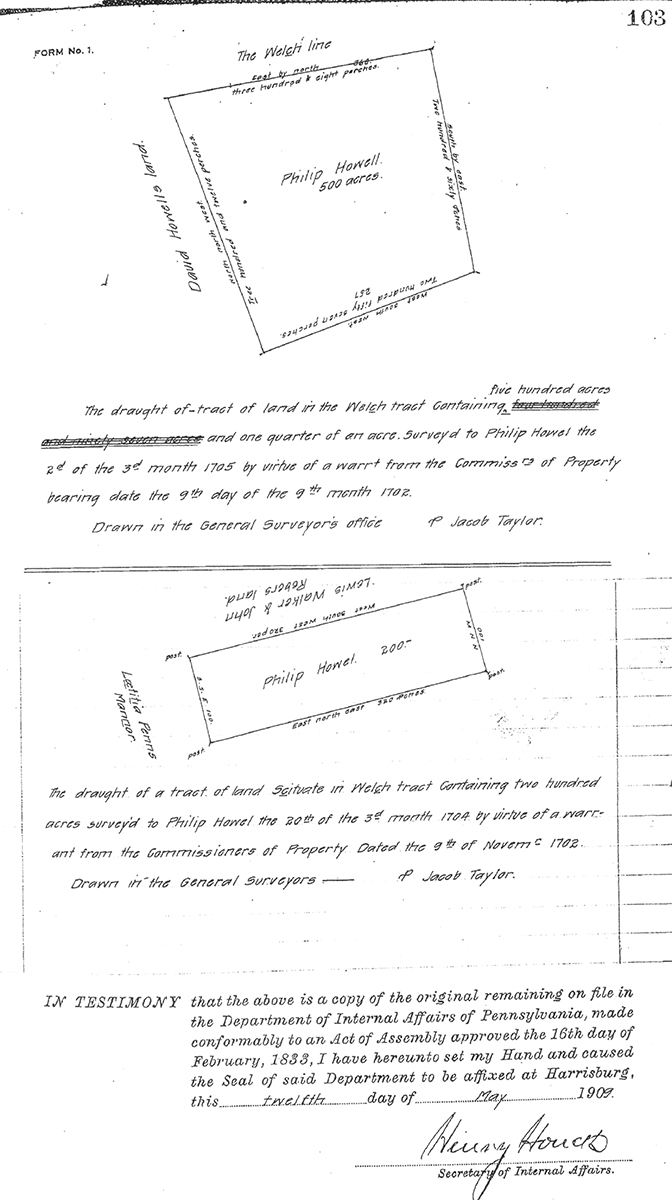 103
FORM No. 1.
The Welch line
East by north 308
three hundred & eight perches.
south by east
Two hundred & sixty
Philip Howell.
500 acres.
David Howells land.
north north west
hundred and twelve perches.
west south west.
Two hundred fifty seven perches.
257
five hundred acres
The draught of-tract of land in the Welch tract Containing ‸ four hundred
and ninety seven acres and one quarter of an acre. Survey'd to Philip Howel the
2d of the 3d month 1705 by virtue of a warrt from the Commissrs of Property
bearing date the 9th day of the 9th month 1702.
Drawn in the General Surveyor's office ⅌ Jacob Taylor.
Lewis Walker & John
Rebers land.
post.
West South West 320 per.
post.
N N W
100
Philip Howel. 200-
S. S. E 100.
Lætitia Penns
Mannor.
East north east 320
post.
post.
The draught of a tract of land Scituate in Welch tract Containing two hundred
acres survey'd to Philip Howel the 20th of the 3d month 1704 by virtue of a warr-
ant from the Commissioners of Property Dated the 9th of Novemc 1702.
Drawn in the General Surveyors — ⅌ Jacob Taylor.
IN TESTIMONY that the above is a copy of the original remaining on file in
the Department of Internal Affairs of Pennsylvania, made
conformably to an Act of Assembly approved the 16th day of
February, 1833, I have hereunto set my Hand and caused
the Seal of said Department to be affixed at Harrisburg,
this twelfth day of May 1909.
Henry Houck
Secretary of Internal Affairs.